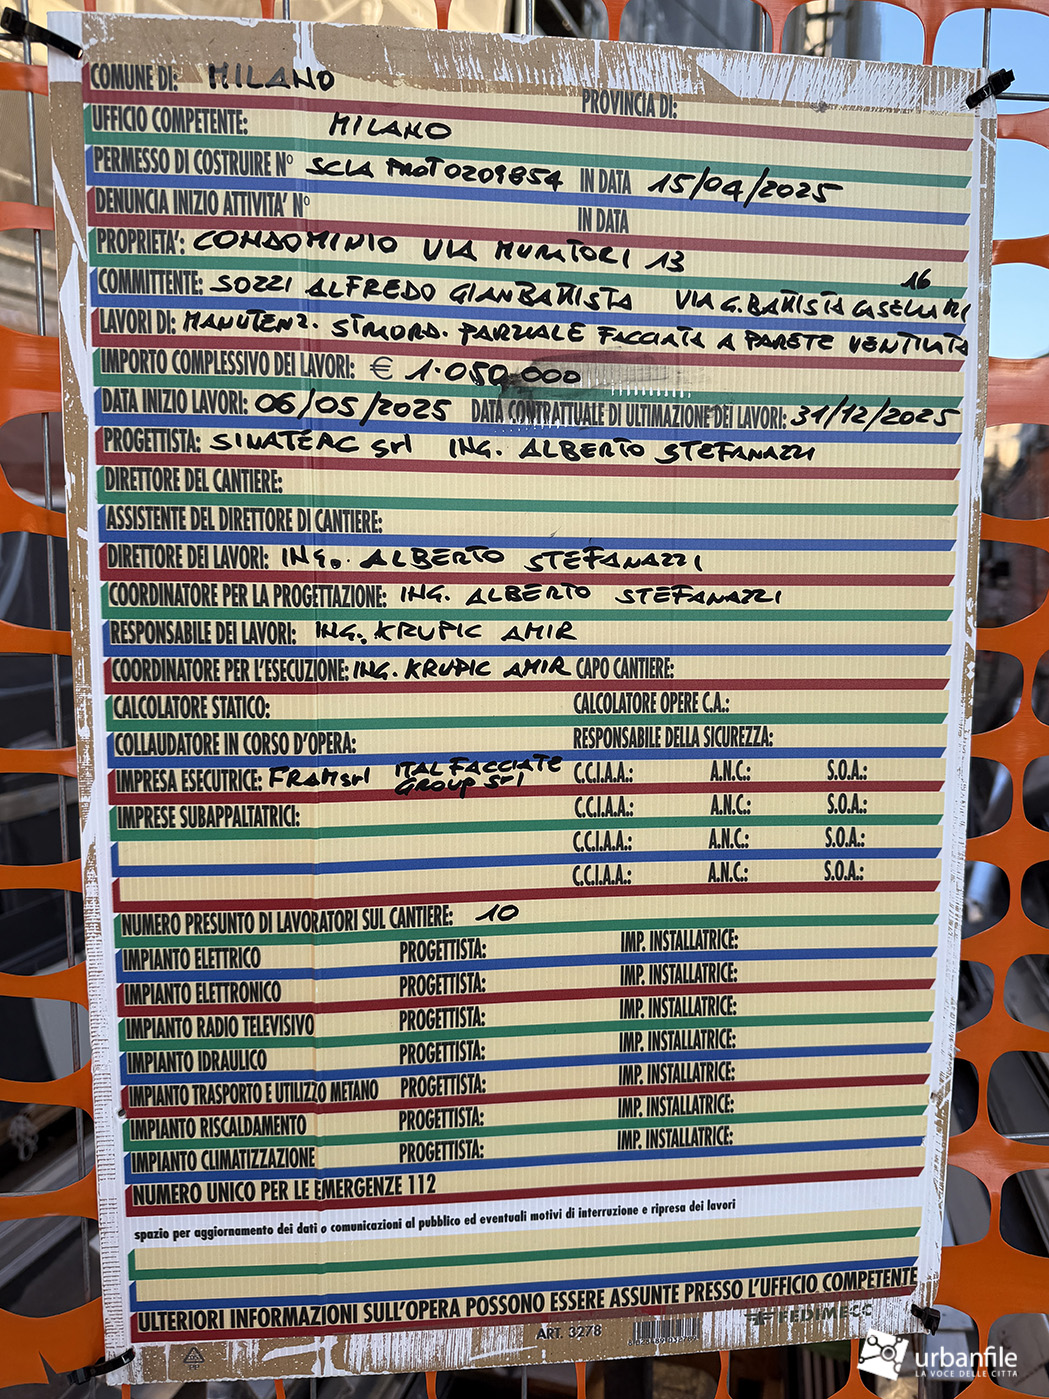 COMUNE DI: MILANO PROVINCIA DI:
UFFICIO COMPETENTE: MILANO
PERMESSO DI COSTRUIRE N° SCIA PROT0209854 IN DATA 15/04/2025
DENUNCIA INIZIO ATTIVITA' N° IN DATA
PROPRIETA': CONDOMINIO VIA MURATORI 13
COMMITTENTE: SOZZI ALFREDO GIANBATTISTA VIA G.BATTISTA CASELLA RI 16
LAVORI DI: MANUTENZ. STRAORD. PARZIALE FACCIATA A PARETE VENTILATA
IMPORTO COMPLESSIVO DEI LAVORI: € 1.050.000
DATA INIZIO LAVORI: 06/05/2025 DATA CONTRATTUALE DI ULTIMAZIONE DEI LAVORI: 31/12/2025
PROGETTISTA: SINATERC Srl ING. ALBERTO STEFANAZZI
DIRETTORE DEL CANTIERE:
ASSISTENTE DEL DIRETTORE DI CANTIERE:
DIRETTORE DEI LAVORI: ING. ALBERTO STEFANAZZI
COORDINATORE PER LA PROGETTAZIONE: ING. ALBERTO STEFANAZZI
RESPONSABILE DEI LAVORI: ING. KRUPIC AMIR
COORDINATORE PER L'ESECUZIONE: ING. KRUPIC AMIR CAPO CANTIERE:
CALCOLATORE STATICO: CALCOLATORE OPERE C.A.:
COLLAUDATORE IN CORSO D'OPERA: RESPONSABILE DELLA SICUREZZA:
IMPRESA ESECUTRICE: FRAM srl ITAL FACCIATE GROUP Srl C.C.I.A.A.: A.N.C.: S.O.A.:
IMPRESE SUBAPPALTATRICI: C.C.I.A.A.: A.N.C.: S.O.A.:
C.C.I.A.A.: A.N.C.: S.O.A.:
C.C.I.A.A.: A.N.C.: S.O.A.:
NUMERO PRESUNTO DI LAVORATORI SUL CANTIERE: 10
IMPIANTO ELETTRICO PROGETTISTA: IMP. INSTALLATRICE:
IMPIANTO ELETTRONICO PROGETTISTA: IMP. INSTALLATRICE:
IMPIANTO RADIO TELEVISIVO PROGETTISTA: IMP. INSTALLATRICE:
IMPIANTO IDRAULICO PROGETTISTA: IMP. INSTALLATRICE:
IMPIANTO TRASPORTO E UTILIZZO METANO PROGETTISTA: IMP. INSTALLATRICE:
IMPIANTO RISCALDAMENTO PROGETTISTA: IMP. INSTALLATRICE:
IMPIANTO CLIMATIZZAZIONE PROGETTISTA: IMP. INSTALLATRICE:
NUMERO UNICO PER LE EMERGENZE 112
spazio per aggiornamento dei dati o comunicazioni al pubblico ed eventuali motivi di interruzione e ripresa dei lavori
ULTERIORI INFORMAZIONI SULL'OPERA POSSONO ESSERE ASSUNTE PRESSO L'UFFICIO COMPETENTE
ART. 3278 FEDIMECC
PP
urbanfile
LA VOCE DELLE CITTÀ